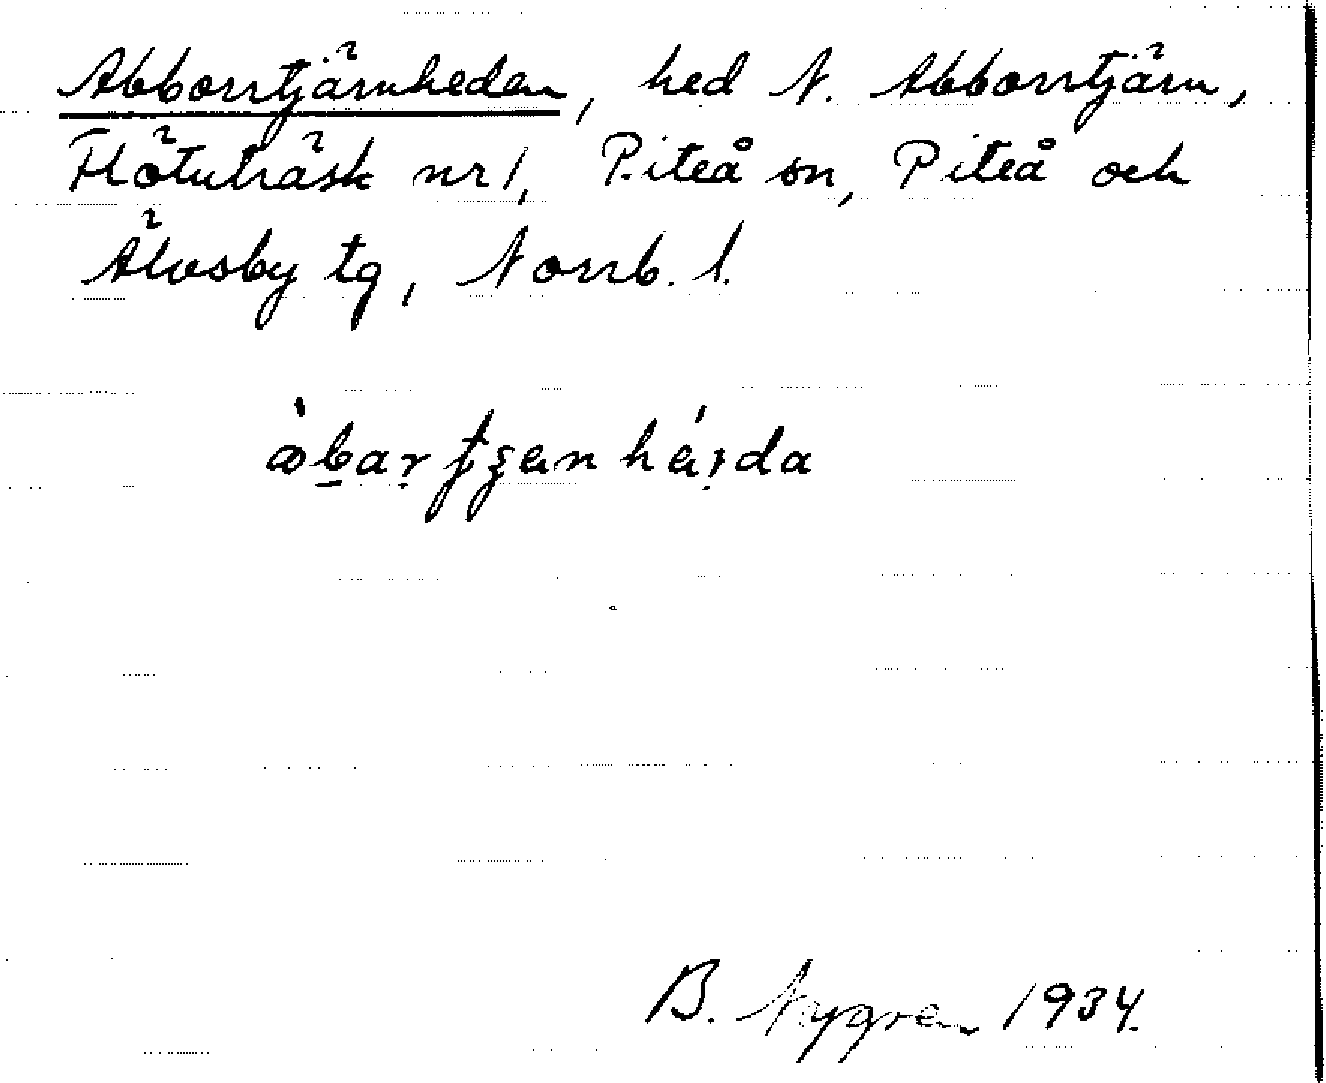 Abborrtjärnheden, hed N. Abborrtjärn,
Flötuträsk nr 1, Piteå sn, Piteå och
Älvsby tg, Norrb. l.
B. Nygren 1934.